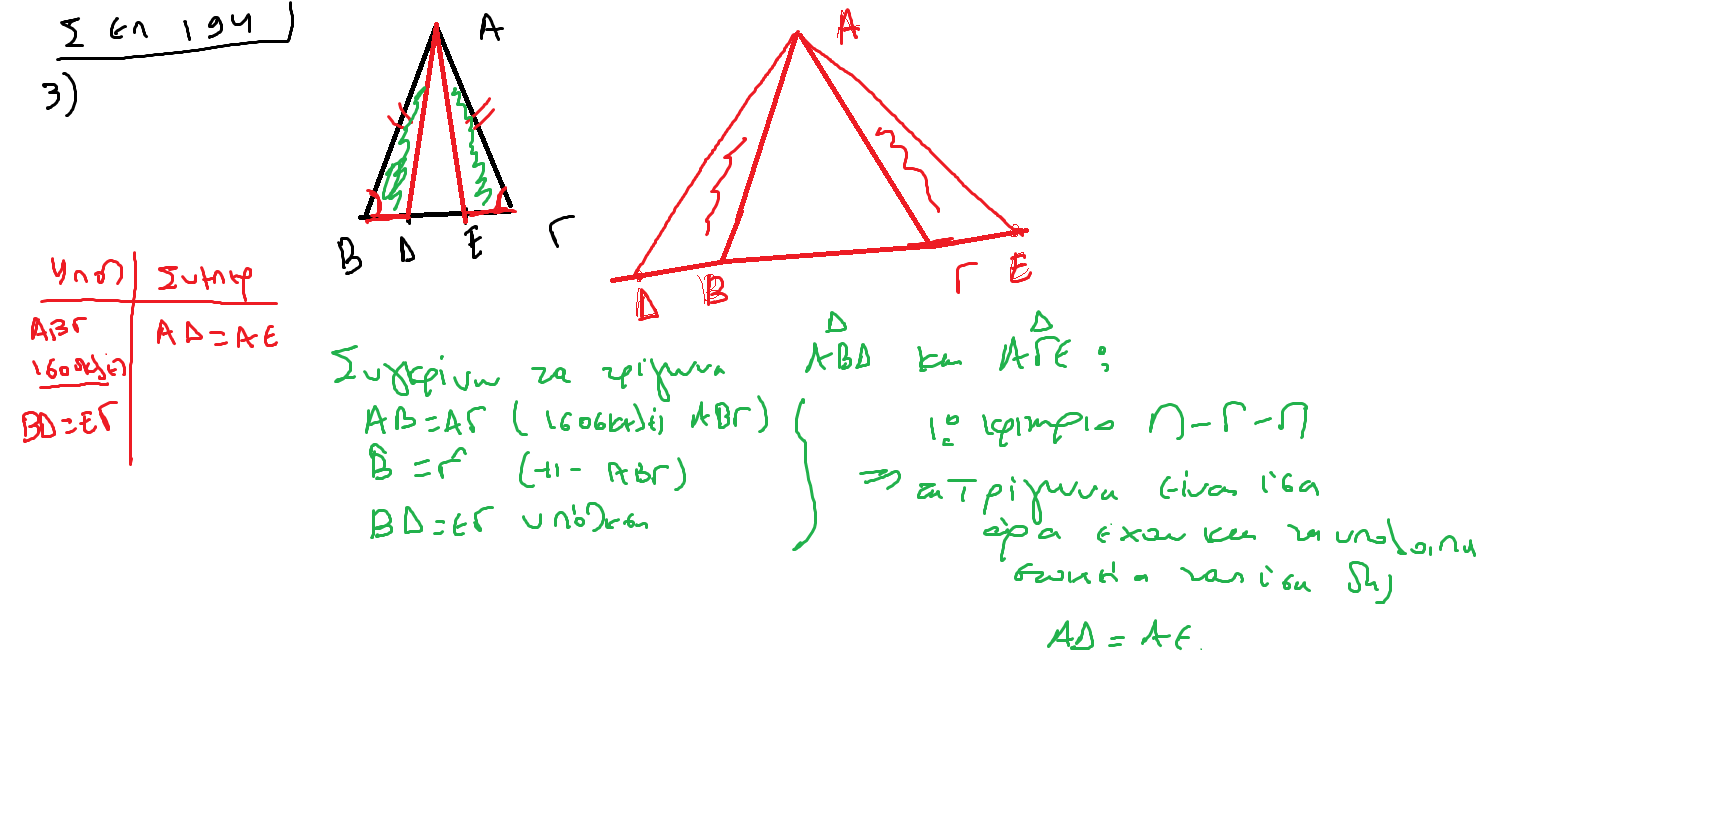 Σελ 194
3)
Α
Β Δ Ε Γ
Α
Δ Β Γ Ε
Υποθ Συμπερ
ΑΒΓ ΑΔ=ΑΕ
ισοσκελές
ΒΔ=ΕΓ
Συγκρίνω τα τρίγωνα ΑΒΔ και ΑΓΕ :
ΑΒ=ΑΓ (ισοσκελές ΑΒΓ)
Β̂ = Γ̂ (-//- ΑΒΓ)
ΒΔ=ΕΓ υπόθεση
1ο κριτήριο Π-Γ-Π
⇒ τα τρίγωνα είναι ίσα
άρα έχουν και τα υπόλοιπα
στοιχεία τους ίσα δηλ
ΑΔ = ΑΕ.